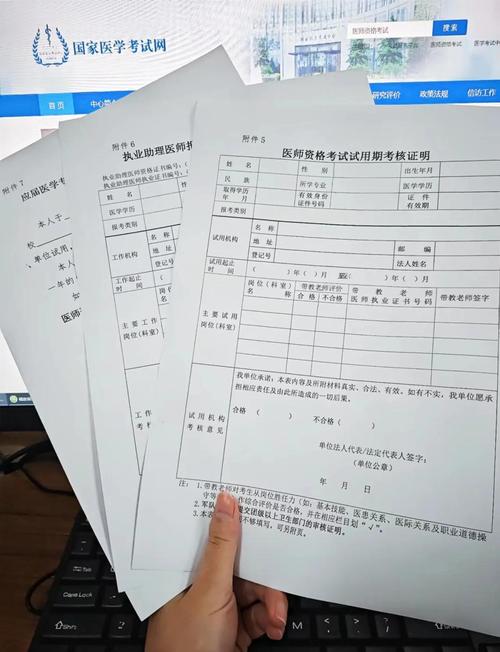 国家医学考试网
医师资格考试
搜索
医师资格考试
首页
中心简介
研究评价
政策法规
信访工作
附件 7
应届医学
本人于
校
单位试用
本人
一年的
医师
附件 6
执业助理医师
执业助理医师资格证书编号:（
执业助理医师执业证书编号:（
姓名
民族
医学学历
报考类别
工作机构
名称
地址
登记号
工作起止
时间
主要工作
岗位(科室)
工作
考核
附件 5
医师资格考试试用期考核证明
姓名 性别 出生年月
民族 所学专业 医学学历
取得学历
年月
有效身份
证件号码
证件
有效期
报考类别
试用机构
名称
地址 邮编
登记号 法人姓名
试用起止
时间
（ ）年（ ）月至（ ）年（ ）月
主要试用
岗位(科室)
岗位(科室)
名称
带教老师评价
合格 不合格
带教老师
医师执业证书号码
带教老师签字
试用机构
考核意见
我单位承诺：本表内容及所附材料真实、合法、有效。如有不实，我单位愿承
担相应责任及由此所造成的一切后果。
合格（ ） 不合格（ ）
单位法人代表/法定代表人签字：
（单位公章）
年 月 日
注：1.带教老师对考生从岗位胜任力（如：基本技能、医患关系、医际关系及职业道德操
守等 作综合评价是否合格，并在相应栏目划“√”。
2.军队 提交团级以上卫生部门的审核证明。
3.本表 不够填写，可另附页。
Caps Lock
Shift
Ctrl